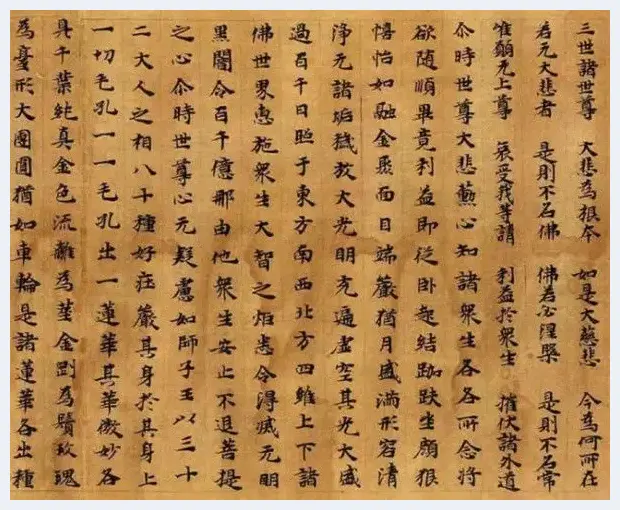 三世諸世尊 大悲為根本 如是大慈悲 今為何所在
若无大悲者 是則不名佛 佛若必涅槃 是則不名常
惟願无上尊 哀受我等請 利益於衆生 摧伏諸外道
尒時世尊大悲薰心知諸衆生各各所念將
欲随順畢竟利益即從卧起結跏趺坐顔貌
憘怡如融金聚面目端嚴猶月盛滿形容清
淨无諸垢穢放大光明充遍虛空其光大盛
過百千日照于東方南西北方四維上下諸
佛世界惠施衆生大智之炬悉令得滅无明
黑闇令百千億那由他衆生安止不退菩提
之心尒時世尊心无疑慮如師子王以三十
二大人之相八十種好莊嚴其身於其身上
一切毛孔一一毛孔出一蓮華其華微妙各
具千葉純真金色流離為莖金剛為鬚玫瑰
為臺形大團圓猶如車輪是諸蓮華各出種